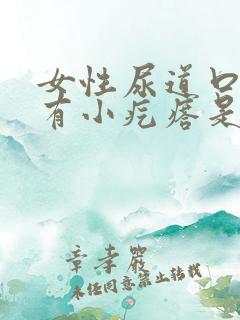 女性尿道口
有小疙瘩是
章孝严
未经同意禁止转载